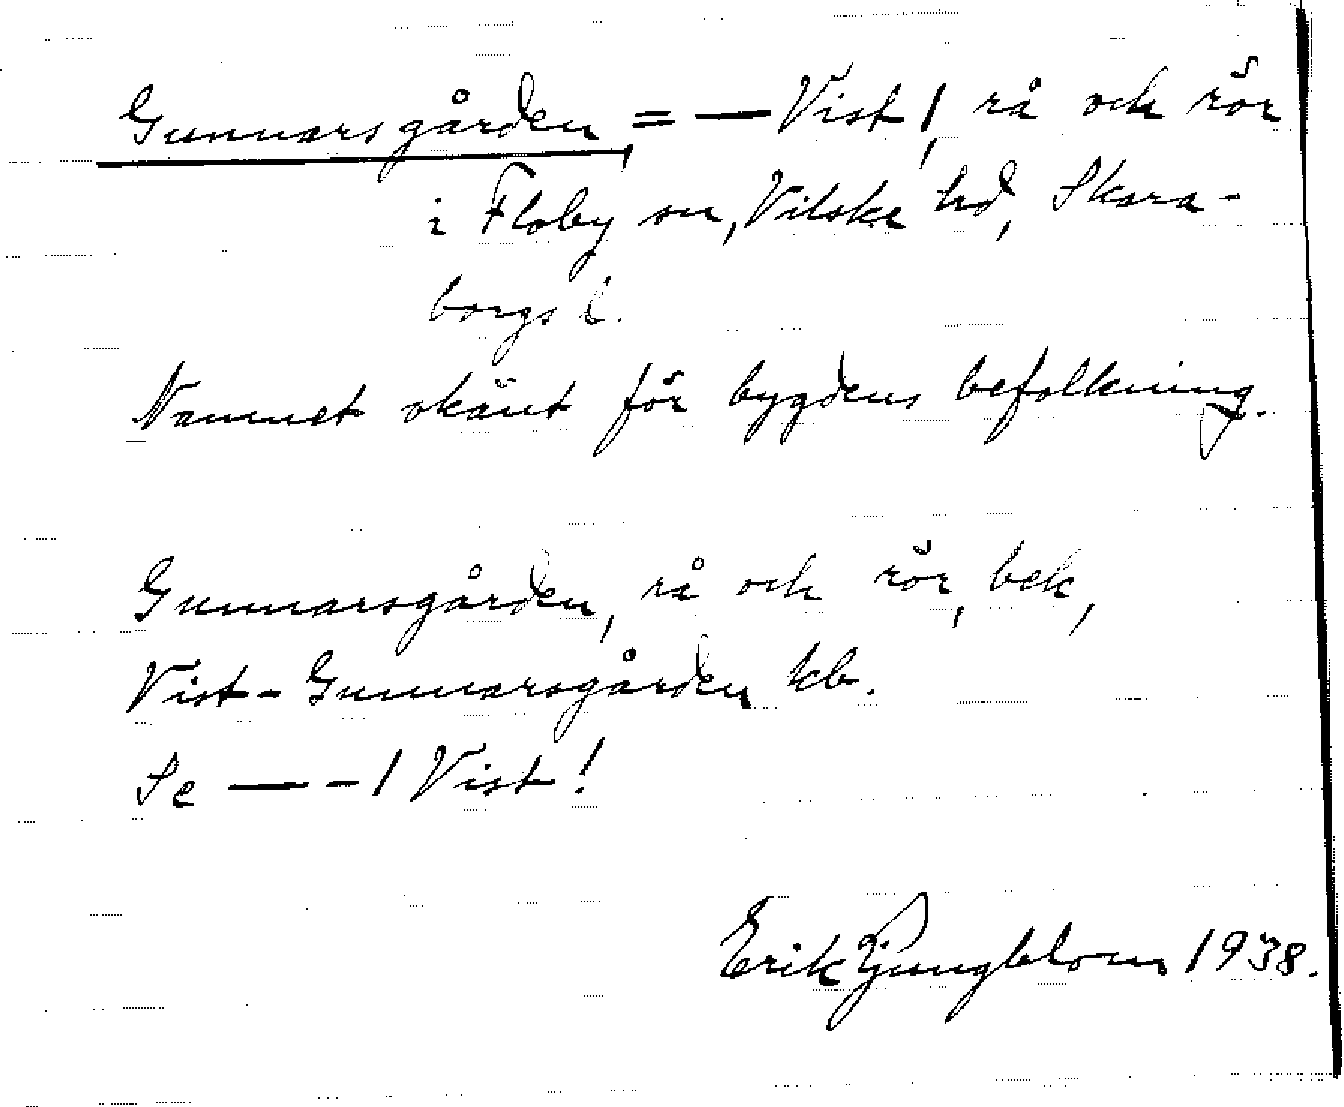 Gunnarsgården = — Vist!, rå och rör
i Floby sn, Vilske hd, Skara-
borgs l.
Namnet okänt för bygdens befolkning.
Gunnarsgården, rå och rör, bek,
Vist-Gunnarsgården kb.
Se — - 1 Vist!
Erik Ljungblom 1938.